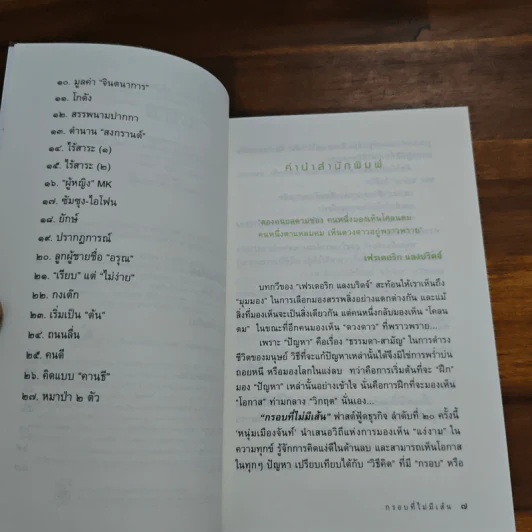 ๑๐. มูลค่า "จินตนาการ"
๑๑. โกดัง
๑๒. สรรพนามปากกา
๑๓. ตำนาน "สงกรานต์"
๑๔. ไร้สาระ (๑)
๑๕. ไร้สาระ (๒)
๑๖. "ผู้หญิง" MK
๑๗. ซัมซุง-ไอโฟน
๑๘. ยักษ์
๑๙. ปรากฏการณ์
๒๐. ลูกผู้ชายชื่อ "อรุณ"
๒๑. "เรียบ" แต่ "ไม่ง่าย"
๒๒. กงเต๊ก
๒๓. เริ่มเป็น "ต้น"
๒๔. ถนนลื่น
๒๕. คนดี
๒๖. คิดแบบ "คานธี"
๒๗. หมาป่า ๒ ตัว
คำนำสำนักพิมพ์
"สองคนยลตามช่อง คนหนึ่งมองเห็นโคลนตม
คนหนึ่งตาแหลมคม เห็นดวงดาวอยู่พราวพราย"
เฟรเดอริก แลงบริดจ์
บทกวีของ "เฟรเดอริก แลงบริดจ์" สะท้อนให้เราเห็นถึง
"มุมมอง" ในการเลือกมองสรรพสิ่งอย่างแตกต่างกัน และแม้
สิ่งที่มองเห็นจะเป็นสิ่งเดียวกัน แต่คนหนึ่งกลับมองเห็น "โคลน
ตม" ในขณะที่อีกคนมองเห็น "ดวงดาว" ที่พราวพราย...
เพราะ "ปัญหา" คือเรื่อง "ธรรมดา-สามัญ" ในการดำรง
ชีวิตของมนุษย์ วิธีที่จะแก้ปัญหาเหล่านั้นได้จึงมิใช่การพร่ำบ่น
ถอยหนี หรือมองโลกในแง่ลบ ทว่าคือการเริ่มต้นที่จะ "ฝึก"
มอง "ปัญหา" เหล่านั้นอย่างเข้าใจ นั่นคือการฝึกที่จะมองเห็น
"โอกาส" ท่ามกลาง "วิกฤต" นั่นเอง...
"กรอบที่ไม่มีเส้น" ฟาสต์ฟู้ดธุรกิจ ลำดับที่ ๒๐ ครั้งนี้
'หนุ่มเมืองจันท์' นำเสนอวิถีแห่งการมองเห็น "แง่งาม" ใน
ความทุกข์ รู้จักการคิดแง่ดีในด้านลบ และสามารถเห็นโอกาส
ในทุกๆ ปัญหา เปรียบเทียบได้กับ "วิธีคิด" ที่มี "กรอบ" หรือ
กรอบที่ไม่มีเส้น ๗